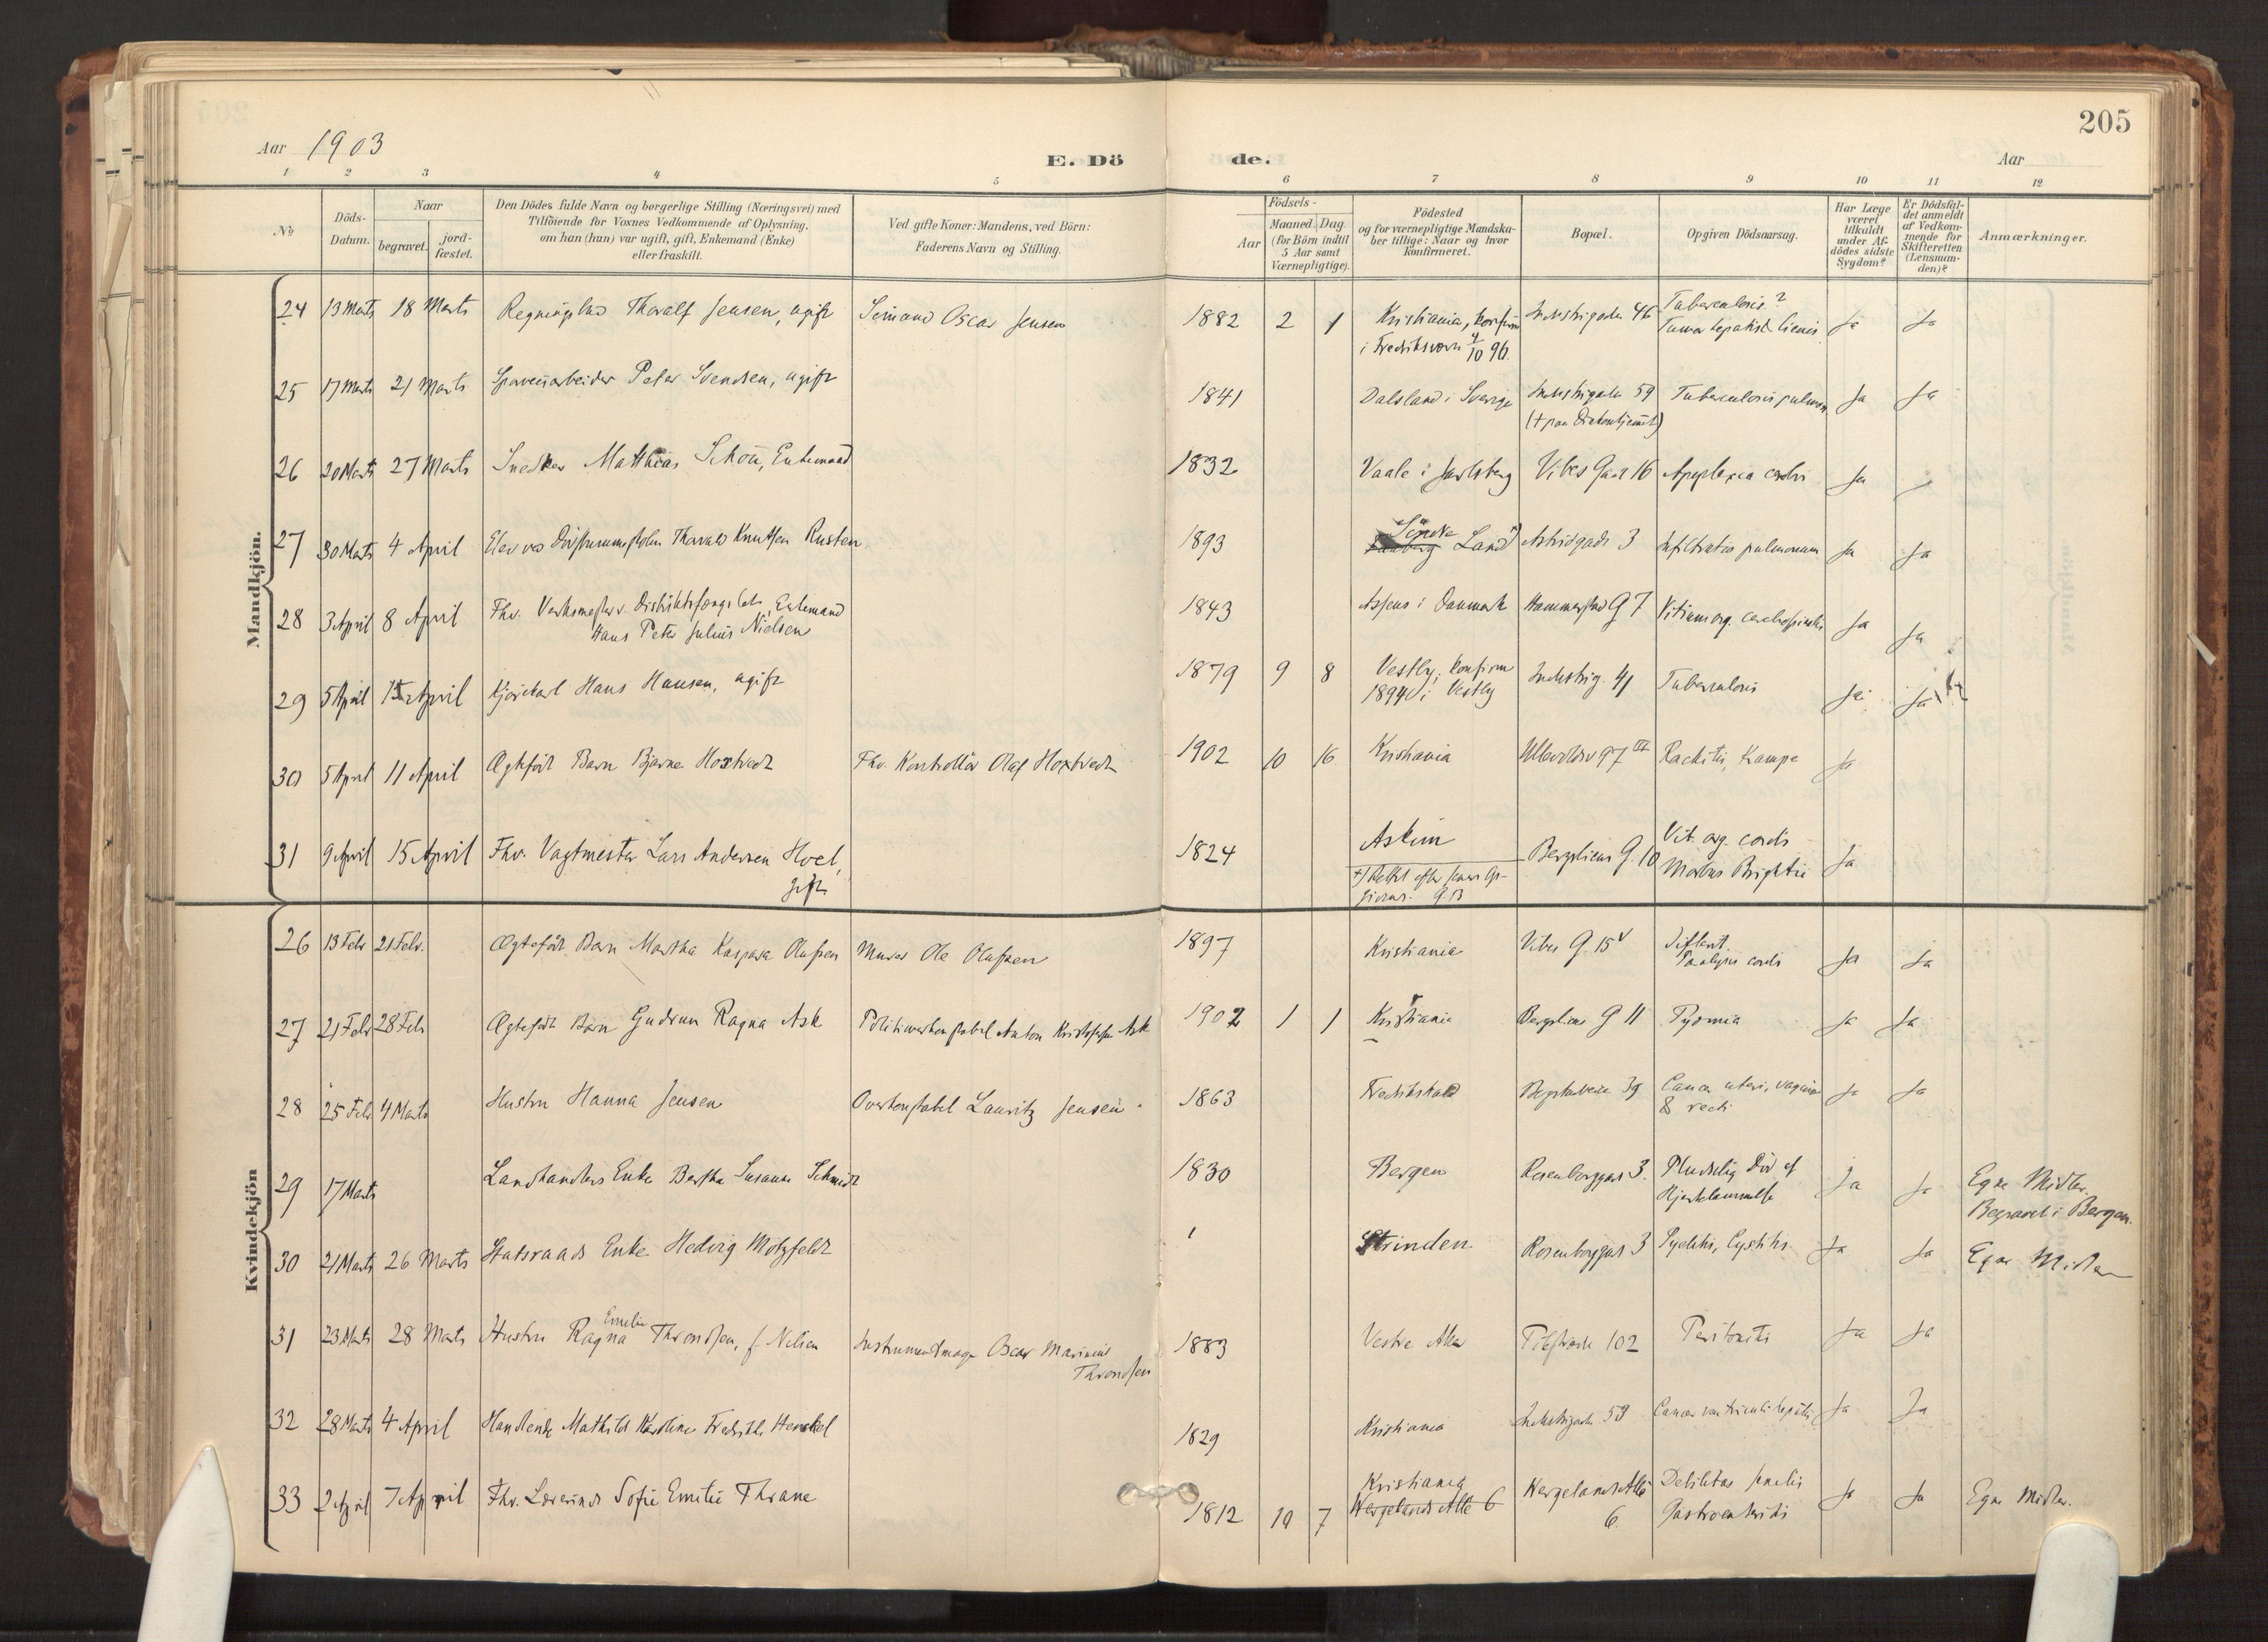 205
Aar 1903
E. Dö
de.
Aar
1 2 3 4 5 6 7 8 9 10 11 12
№
Döds-
Datum.
Naar
begravet.
jord-
fæstet.
Den Dödes fulde Navn og borgerlige Stilling (Næringsvei) med
Tilföiende for Voxnes Vedkommende af Oplysning.
om han (hun) var ugift, gift, Enkemand (Enke)
eller fraskilt.
Ved gifte Koner: Mandens, ved Börn:
Faderens Navn og Stilling.
Födsels-
Aar
Maaned. Dag
(for Börn indtil
5 Aar samt
Værnepligtige).
Födested
og for værnepligtige Mandska-
ber tillige: Naar og hvor
Konfirmeret.
Bopæl.
Opgiven Dödsaarsag.
Har Læge
været
tilkaldt
under Af-
dödes sidste
Sygdom?
Er Dödsfal-
det anmeldt
af Vedkom-
mende for
Skifteretten
(Lensman-
den)?
Anmærkninger.
Mandkjön.
24 13 Marts 18 Marts Thoralf Jensen, ugift Sömand Oscar Jensen 1882 2 1 Kristiania, konfirm Industrigaden 46 Tuberculosis?
i Fredriksværn 4/10 96. Tumor hepatis & lienis Ja Ja
25 17 Marts 21 Marts Peter Svendsen, ugift 1841 Dalsland i Sverige Industrigaden 59 Tuberculosis pulmon Ja Ja
(† paa Diakonhjemmet)
26 20 Marts 27 Marts Snedker Matthias Schou, Enkemand 1832 Vaale i Jarlsberg Vibes Gade 16 Apoplexia cerebri Ja
27 30 Marts 4 April Elev ved Døvstummeskolen Thorvald Knutsen Rusten 1893 Söndre Land Astridgade 3 Infiltratio pulmonum Ja Ja
28 3 April 8 April Fhv. Verksmester v. Distriktsfængslet, Enkemand
Hans Peter Julius Nielsen 1843 Assens i Danmark Hammerstad G 7 Vitium org. cerebrospinalis Ja Ja
29 5 April 15 April Kjørekarl Hans Hansen, ugift 1879 9 8 Vestby, konfirm Industrig. 41 Tuberculosis Ja Ja
1894 i Vestby
30 5 April 11 April Ægtefödt Barn Bjarne Hoxtvedt Fhv. Kontrollör Olaf Hoxtvedt 1902 10 16 Kristiania Ullevoldsv 97 IV Rachitis, Krampe Ja
31 9 April 15 April Fhv. Vagtmester Lars Andersen Hoel,
gift 1824 Askim Bergsliens G. 10 Vit. org. cordis
Morbus Brightii Ja
Kvindekjön
26 13 Febr 21 Febr. Ægtefödt Barn Martha Kaspara Olafsen Murer Ole Olafsen 1897 Kristiania Vibes G. 15 V Difterit.
Paralysis cordis Ja Ja
27 21 Febr 28 Febr Ægtefödt Barn Gudrun Ragna Ask Politioverkonstabel Anton Kristoffersen Ask 1902 1 1 Kristiania Bergsliens G 11 Pyæmia Ja Ja
28 25 Febr 4 Marts Hustru Hanna Jensen Overkonstabel Lauritz Jensen 1863 Fredrikshald 39 Cancer uteri, vaginæ
& recti Ja Ja
29 17 Marts Landhandlers Enke Bertha Susanna Schmidt 1830 Bergen Rosenborggade 3. Pludselig Död af
Hjertelammelse Ja Ja Egne Midler.
Begravet i Bergen.
30 21 Marts 26 Marts Statsraads Enke Hedvig Motzfeldt Strinden Rosenborggade 3 Pyelitis, Cystitis Ja Ja Egne Midler
31 23 Marts 28 Marts Hustru Ragna Emilie Throndsen, f. Nilsen Instrumentmager Oscar Marinius
Throndsen 1883 Vestre Aker 102 Peritonitis Ja Ja
32 28 Marts 4 April Handlende Mathilde Karoline Fredrikke Henckel 1829 Kristiania Industrigaden 59 Cancer ventriculi hepatis Ja Ja
33 2 April 7 April Fhv. Lærerinde Sofie Emilie Thrane 1812 10 7 Kristiania
Wergelands Alle 6 Wergelands Alle
6. Debilitas senilis
Gastroenteritis Ja Ja Egne Midler.